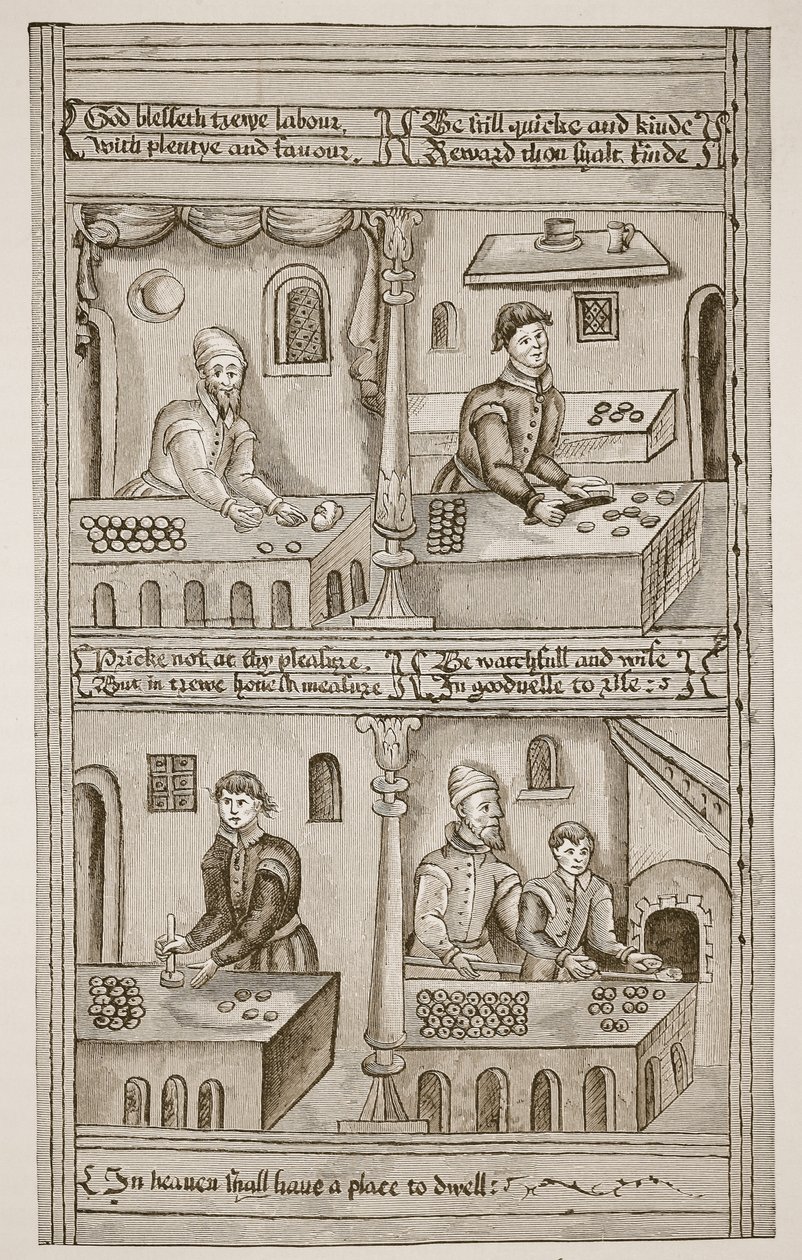 God blesseth trewe labour,
With plentye and favour.
Be still quicke and kinde
Reward thou shalt finde
Pricke not at thy pleasure.
But in trewe honest measure
Be watchfull and wise
In goodnesse to rise:
In heaven shall have a place to dwell: